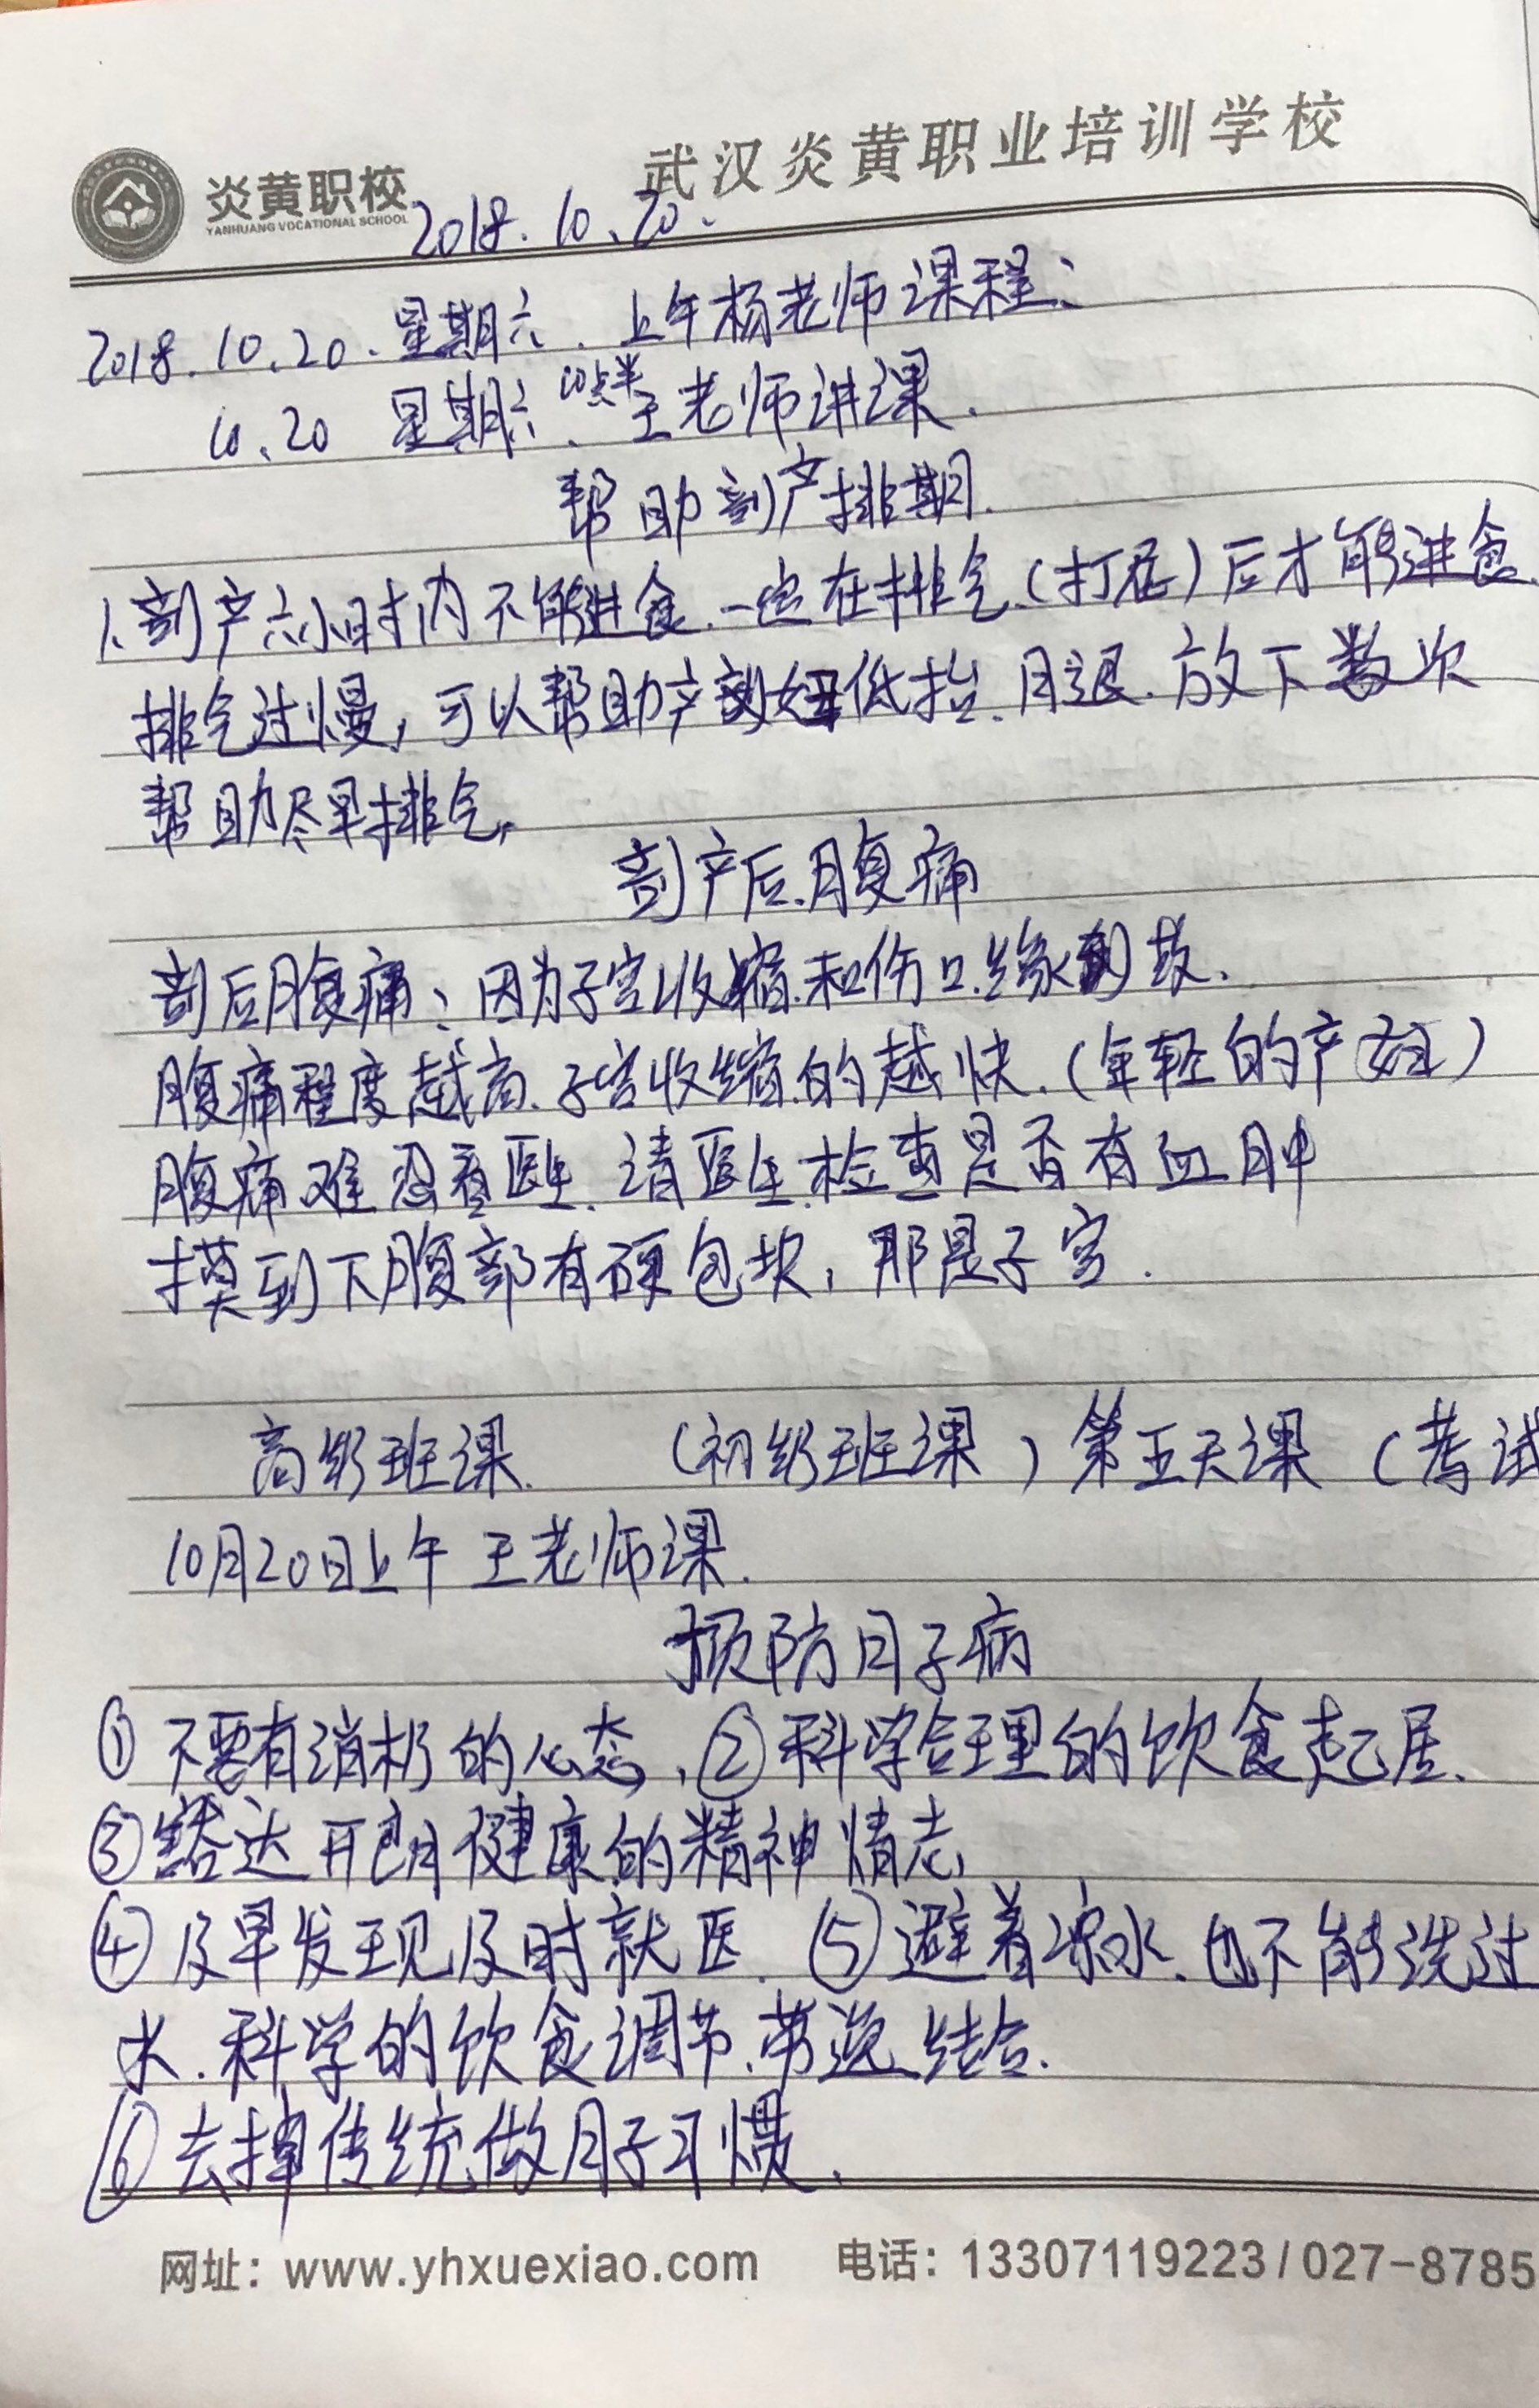 武汉炎黄职业培训学校
炎黄职校
YANHUANG VOCATIONAL SCHOOL
2018.10.20.
2018.10.20.星期六.上午杨老师课程:
10.20 星期六.10点半王老师讲课.
帮助剖产排期.
1.剖产六小时内不能进食.一定在排气(打屁)后才能进食.
排气过慢,可以帮助产妇低抬.腿.放下数次
帮助尽早排气,
剖产后.腹痛
剖后腹痛:因为子宫收缩.和伤口.缘故.
腹痛程度越高.子宫收缩.的越快.(年轻的产妇)
腹痛难忍看医生.请医生.检查是否有血肿
摸到下腹部有硬包块,那是子宫.
高级班课. (初级班课)第五天课(考试
10月20日上午 王老师课.
预防月子病
①不要有消极的心态,②科学合理的饮食起居.
③豁达开朗健康的精神情志,
④及早发现及时就医.⑤避着凉水.也不能洗过
水.科学的饮食调节.劳逸结合.
⑥去掉传统做月子习惯.
网址:www.yhxuexiao.com 电话:13307119223/027-8785